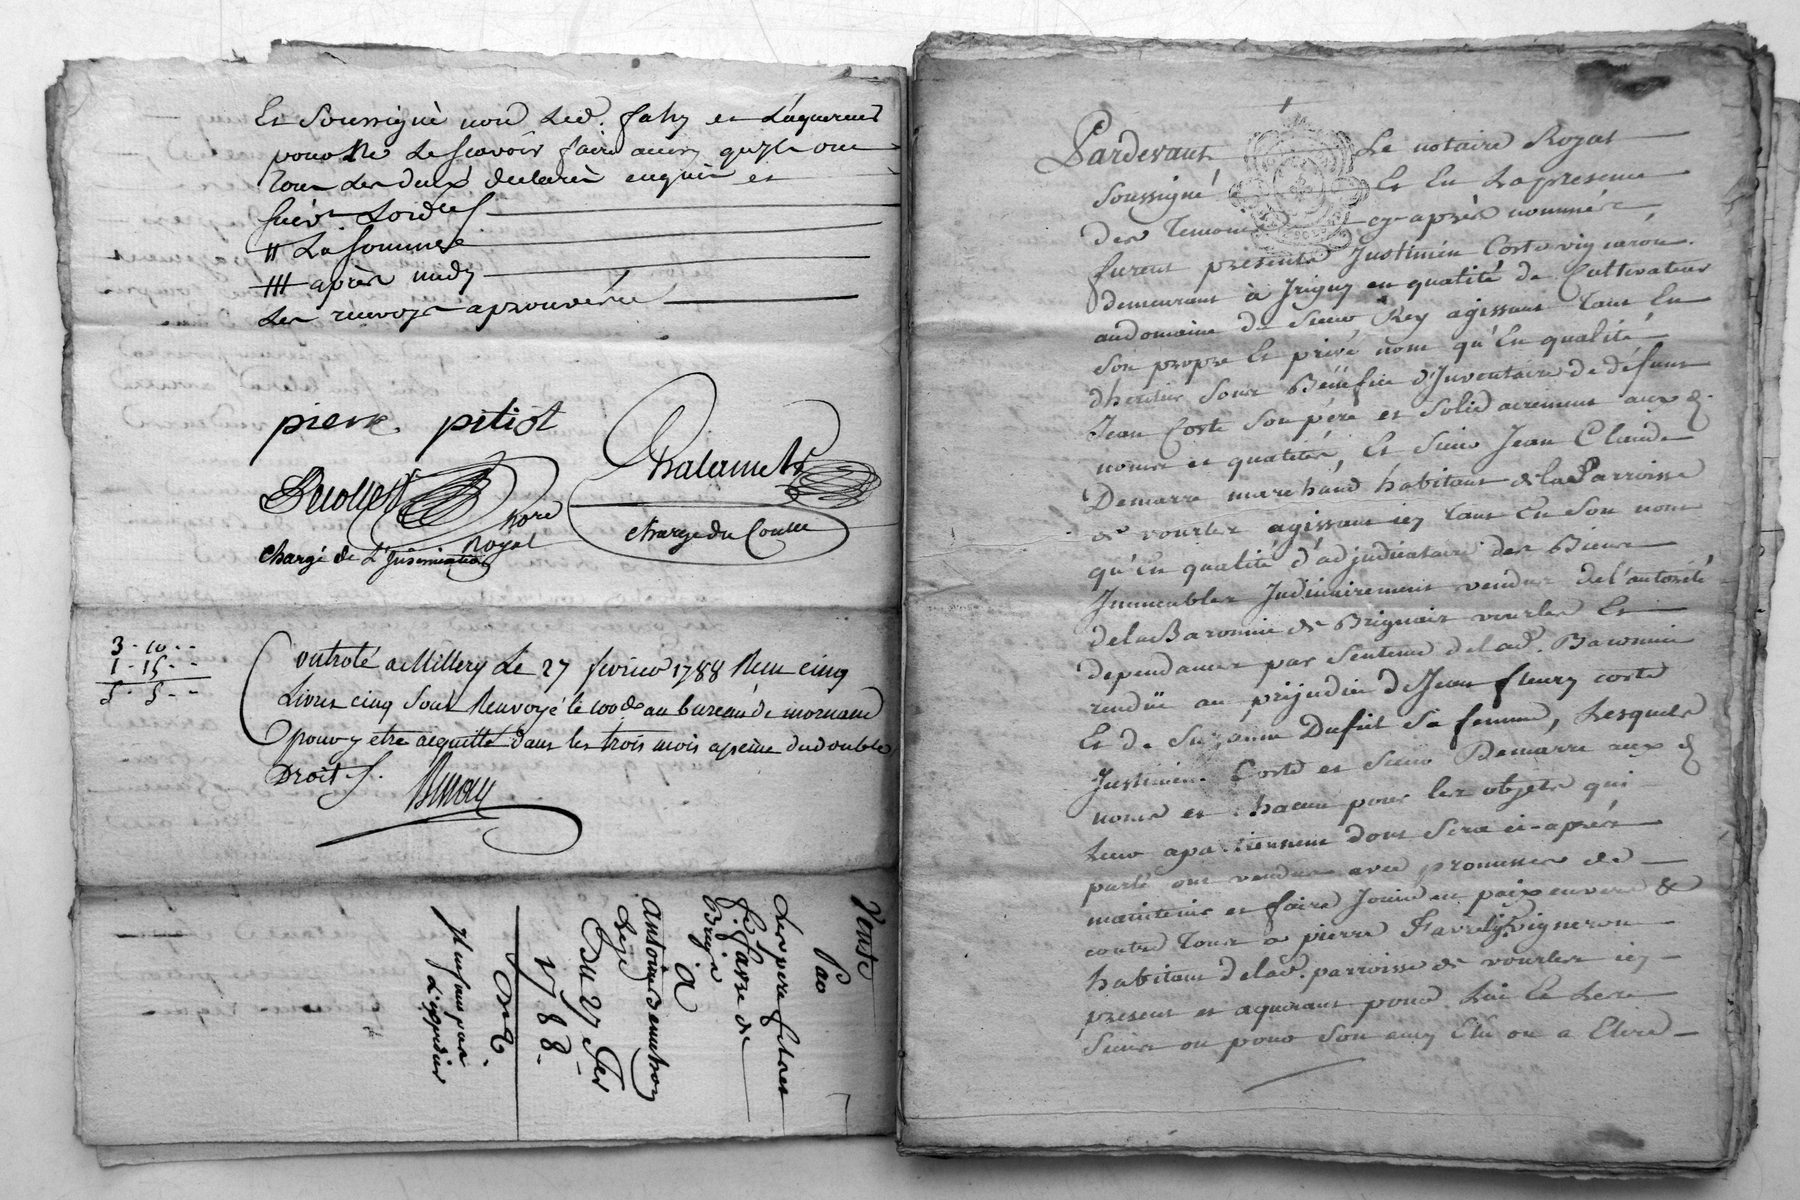 Et Soussigné non Led. fahy et L'aquereur
pour Ne Le Scavoir faire ainsy qu'ils ont
Tous Les deux declaré enquis et
Lordes
# La Somme
# après midy
Les renvoys aprouvées
pierre pitiot
Decollest Chalamet
Nore
Royal
Chargé de L'Insinuation chargé du Controlle
3 - 10 - -
1 - 15 - -
5 - 5 - -
Controlé a Millery Le 27 fevrier 1788 Reçu cinq
Livres cinq Sous Renvoyé le 100e au bureau de mornand
pour y etre acquitté dans les trois mois a peine du double
Droit
Vente
Par
Les pere & fils
favre de
Brign
a
antoine
Du 27 fer
1788
N'insinué pas
Pardevant Le notaire Royal
Soussigné Et En La presence
des Temoins cy-après nommés
furent présents Justinien Coste vigneron
demeurant à Irigny en qualité de Cultivateur
au domaine de Sieur Rey agissant tant En
Son propre Et privé nom qu'En qualité
d'heritier Sous Bénéfice d'Inventaire de défunt
Jean Coste Son père et Solidairement aux d.
noms et qualités, Et Sieur Jean Claude
Demarre marchand habitant de la Parroisse
de vourles agissant icy tant En Son nom
qu'En qualité d'adjudicataire des Biens
Immeubles Judiciairement vendus de l'autorité
de la Baronnie de Brignais vourles Et
dependances par Sentence de lad. Baronnie
rendüe au préjudice de Jean fleury coste
Et de Suzanne Dufut Sa femme, Lesquels
Justinien Coste et Sieur Demarre aux d.
noms et chacun pour les objets qui
Leur apartiennent dont Sera ci-après
parlé ont vendus avec promesse de
maintenir et faire Jouir en paix envers &
contre Tous a pierre Favre vigneron
habitant de lad. parroisse de vourles icy
présent et aquerant pour Lui Et Les
Siens ou pour Son amy Elu ou a Elire